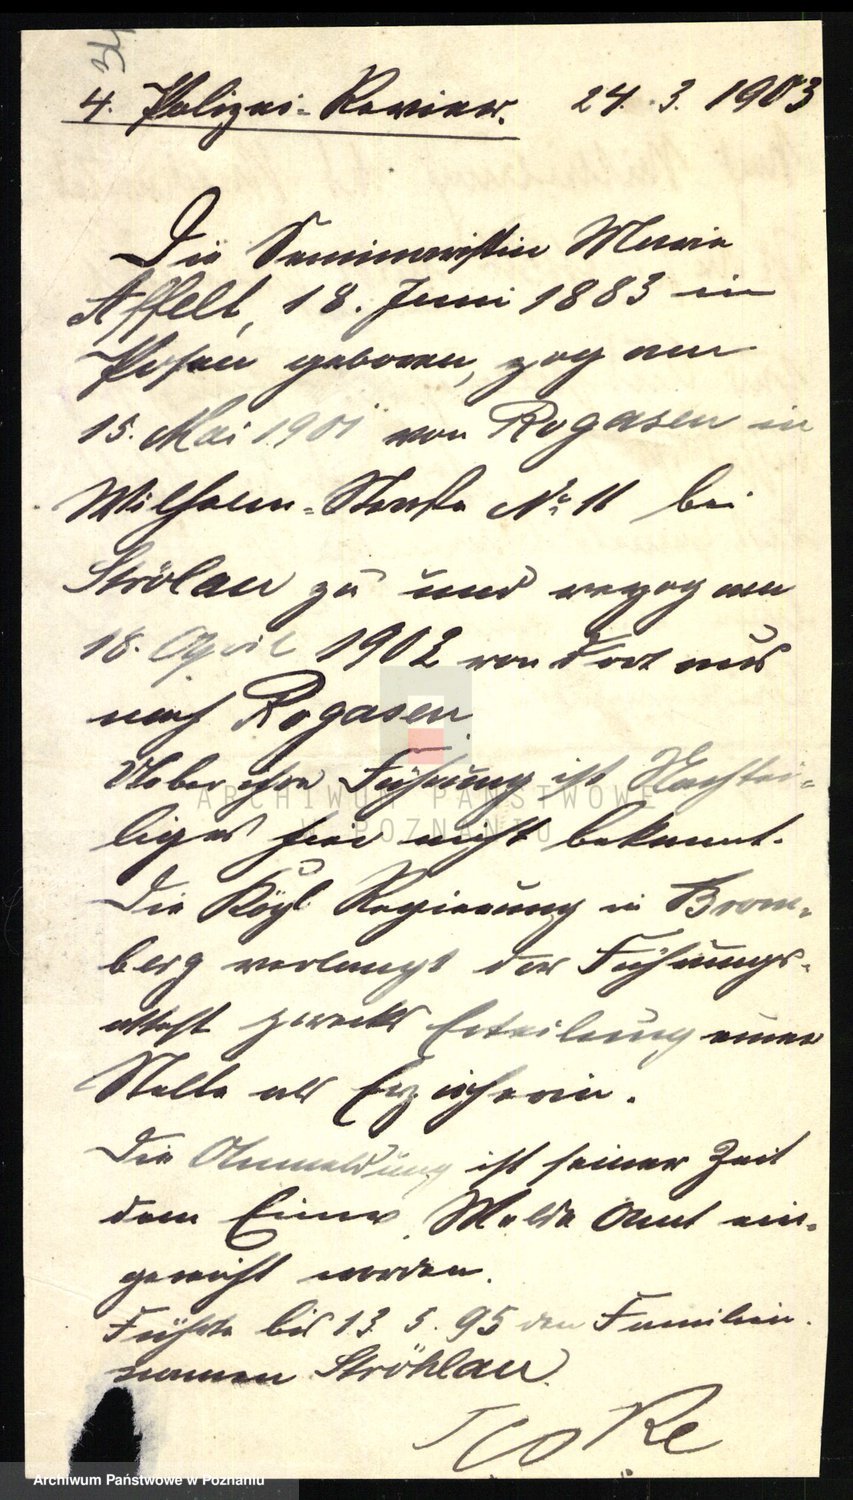 34
4. Polizei-Revier. 24. 3. 1903
Die Seminaristin Maria
Affelt, 18. Juni 1883 in
Posen geboren, zog am
15. Mai 1901 von Rogasen in
Wilhelm-Straße No 11 bei
Strölau zu und verzog am
18. April 1902 von dort aus
nach Rogasen.
Ueber ihre Führung ist Nachtei-
liges hier nicht bekannt.
Die Kögl Regierung in Brom-
berg verlangt das Führungs-
attest zwecks Erteilung einer
Stelle als Erzieherin.
Die Anmeldung ist seiner Zeit
dem Einw. Melde Amt ein-
gereicht worden.
Führte bis 13. 5. 95 den Familien-
namen Ströhlau
ARCHIWUM PAŃSTWOWE
W POZNANIU
Archiwum Państwowe w Poznaniu